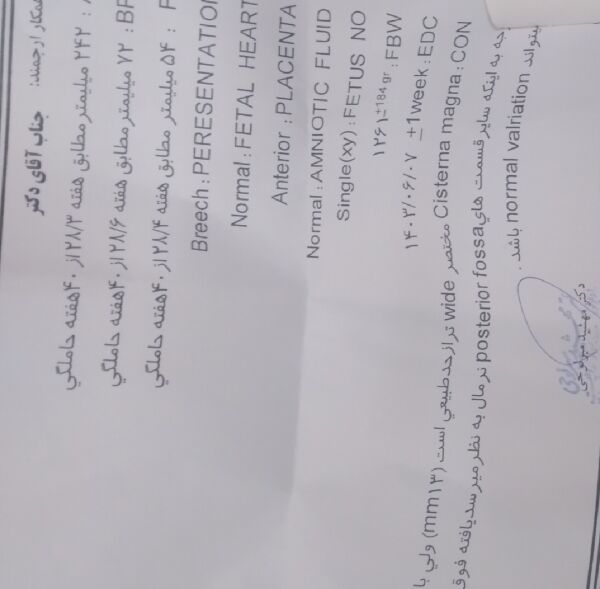 همکار ارجمند: جناب آقای دکتر
۲۴۲ میلیمتر مطابق هفته ۲۸/۳ از ۴۰ هفته حاملگي
۷۲ میلیمتر مطابق هفته ۲۸/۶ از ۴۰ هفته حاملگي
۵۴ میلیمتر مطابق هفته ۲۸/۴ از ۴۰ هفته حاملگي
Breech : PERESENTATION
Normal : FETAL HEART
Anterior : PLACENTA
Normal : AMNIOTIC FLUID
Single(xy) : FETUS NO
۱۲۶۱±184 gr : FBW
۱۴۰۳/۰۶/۰۷ ±1week : EDC
Cisterna magna : CON مختصر wide تر از حد طبیعي است (mm۱۳) ولي با
توجه به اینکه سایر قسمت های posterior fossa نرمال به نظر میرسد یافته فوق
میتواند normal valriation باشد .